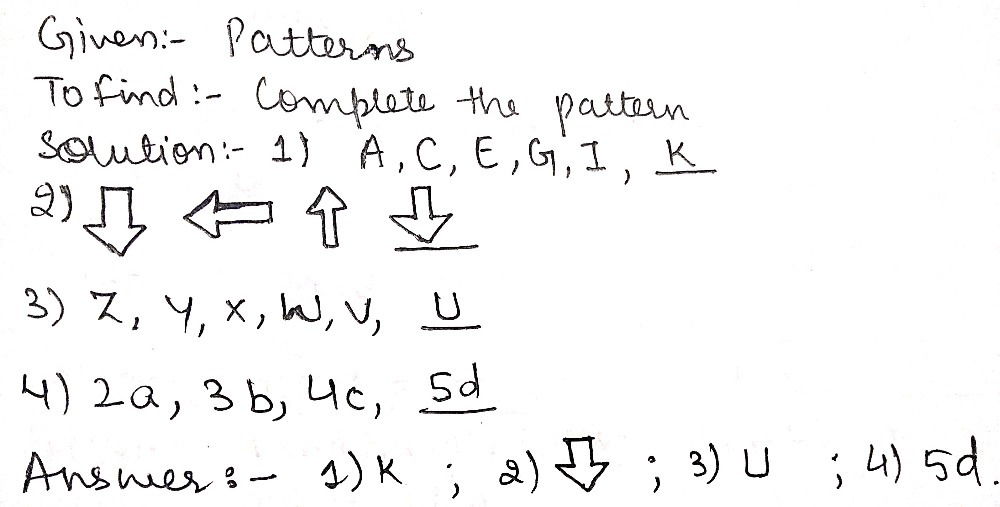 Given:- Patterns
To find :- Complete the pattern
Solution:- 1) A, C, E, G, I, K
2) ⇩ ⇦ ⇧ ⇩
3) Z, Y, X, W, V, U
4) 2a, 3b, 4c, 5d
Answer :- 1) K ; 2) ⇩ ; 3) U ; 4) 5d.